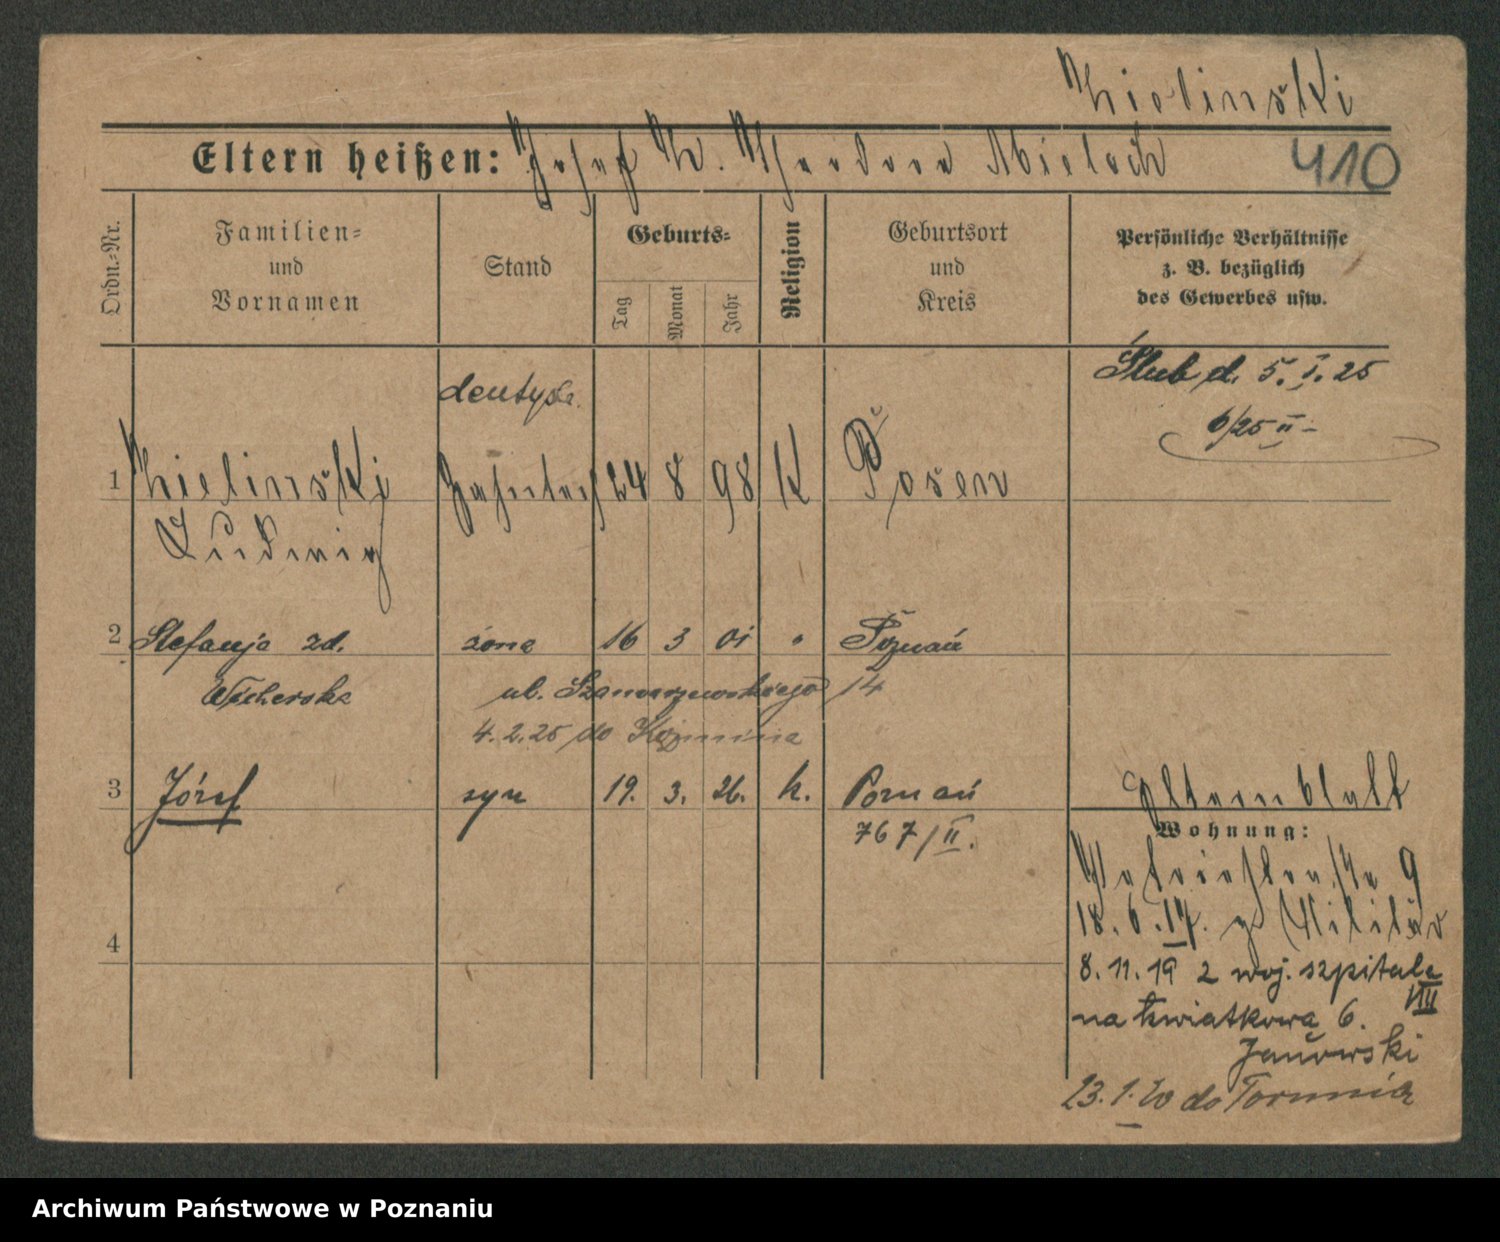 Zielinski
Eltern heißen: Josef Z. Theodora Mieloch
410
Ordn.-Nr.
Familien-
und
Vornamen
Stand
Geburts-
Tag
Monat
Jahr
Religion
Geburtsort
und
Kreis
Persönliche Verhältnisse
z. B. bezüglich
des Gewerbes usw.
Ślub d. 5. I. 25
6/25 II -
dentysta.
1 Zielinski 24 8 98 K Posen
Ludwig
2 Stefanja zd. żona 16 3 01 " Poznań
Wicherska
ul. Szamarzewskiego 14
4.2.25 do Koźmina
3 Józef syn 19. 3. 26. k. Poznań
767/II.
Elternblatt
Wohnung:
9
18. 6. 17. z Militär
8. 11. 19 z woj. szpitala
VII
na Kwiatkowa 6.
Janowski
23. 1. 20 do Torunia
4
Archiwum Państwowe w Poznaniu